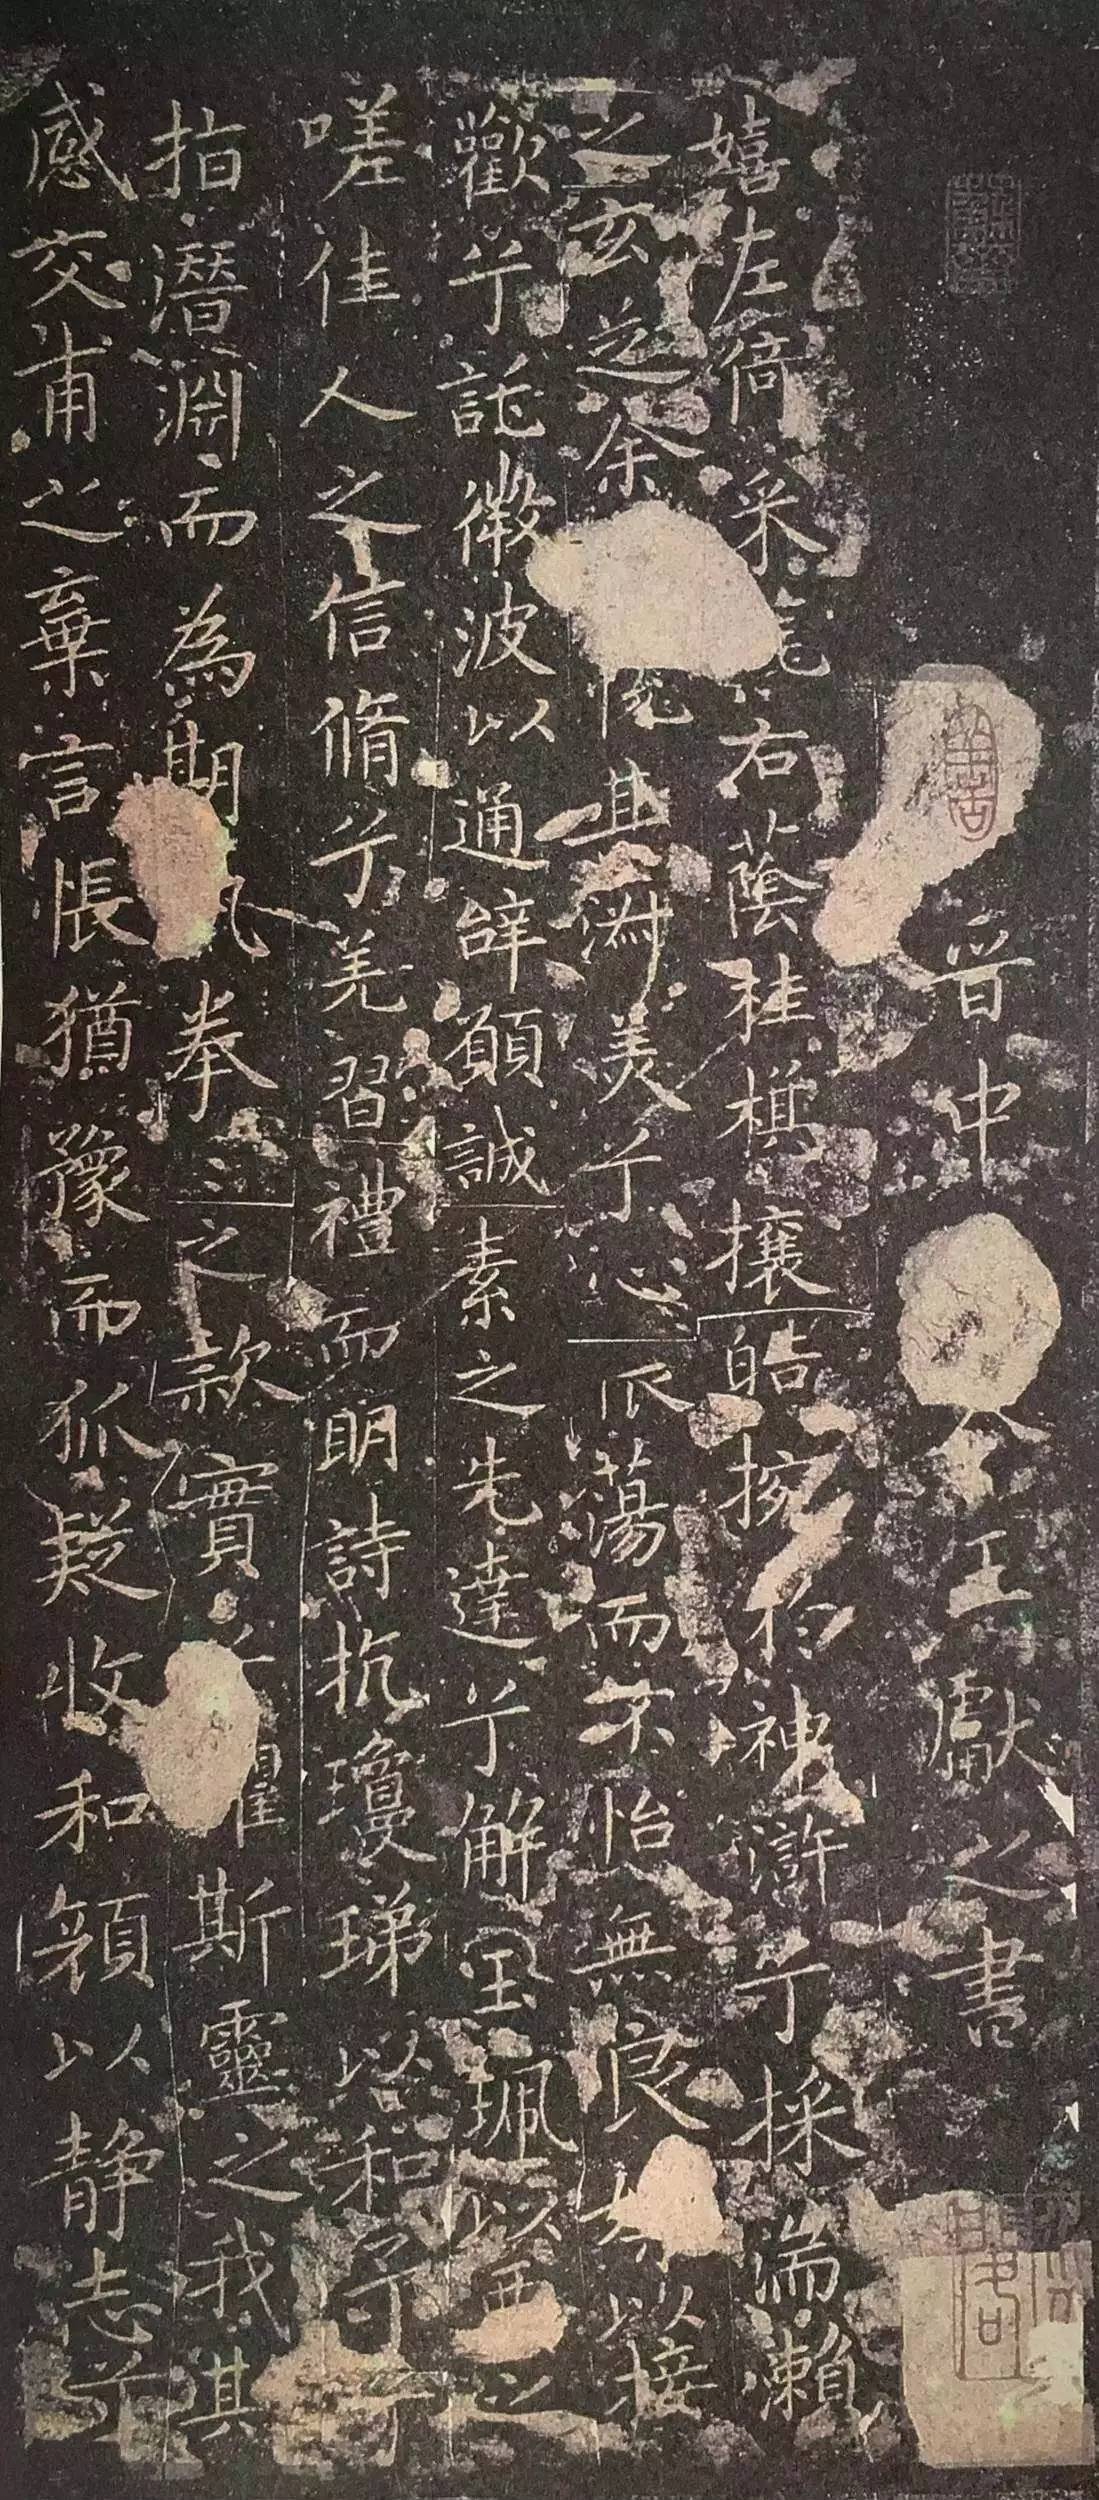 晉中令王獻之書
嬉左倚采旄右蔭桂旗攘皓捥於神滸兮採湍瀨
之玄芝余悅其淑美兮心振蕩而不怡無良媒以接
歡兮託微波以通辭願誠素之先達兮解玉珮以要之
嗟佳人之信脩兮羌習禮而明詩抗瓊珶以和予兮
指潛淵而為期執拳〻之款實兮懼斯靈之我欺
感交甫之棄言悵猶豫而狐疑收和顏以靜志兮